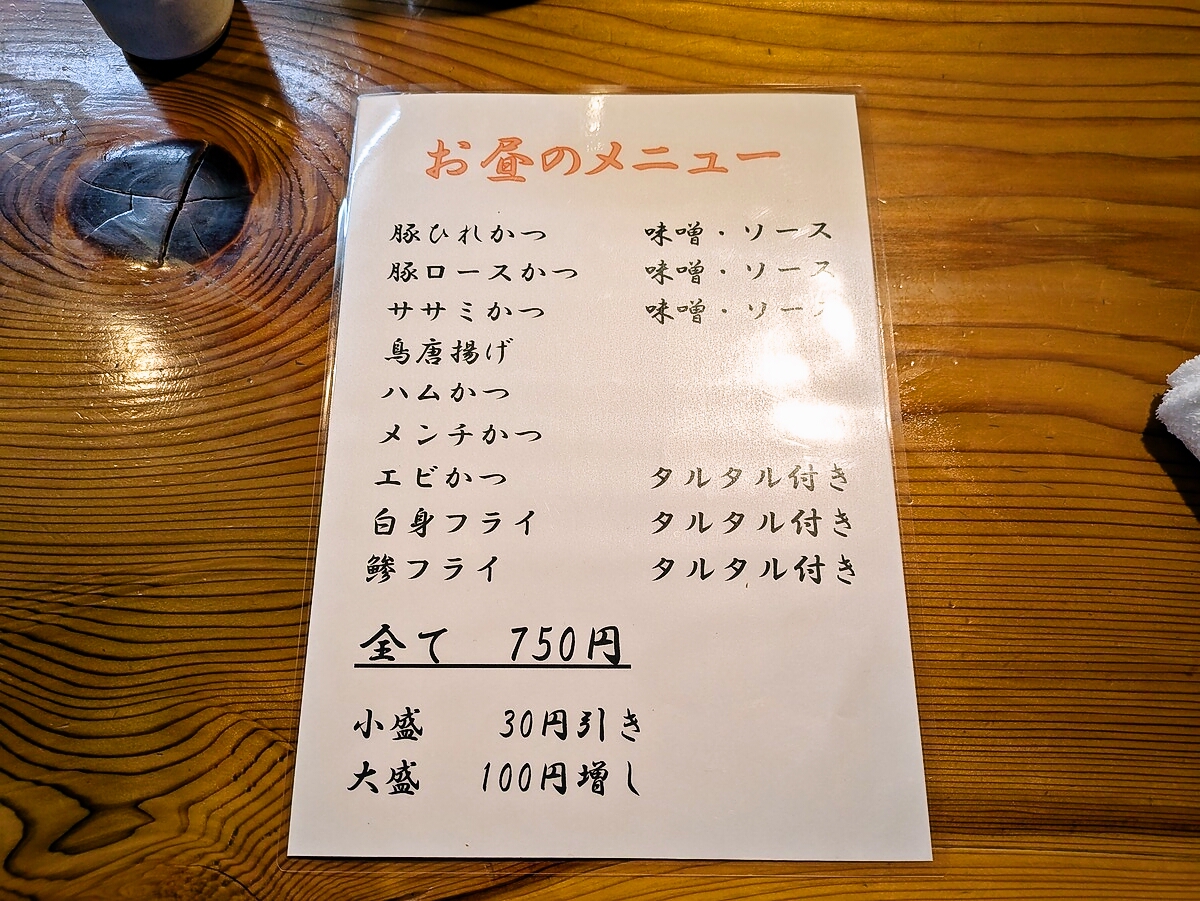 お昼のメニュー
豚ひれかつ 味噌・ソース
豚ロースかつ 味噌・ソース
ササミかつ 味噌・ソース
鳥唐揚げ
ハムかつ
メンチかつ
エビかつ タルタル付き
白身フライ タルタル付き
鯵フライ タルタル付き
全て 750円
小盛 30円引き
大盛 100円増し